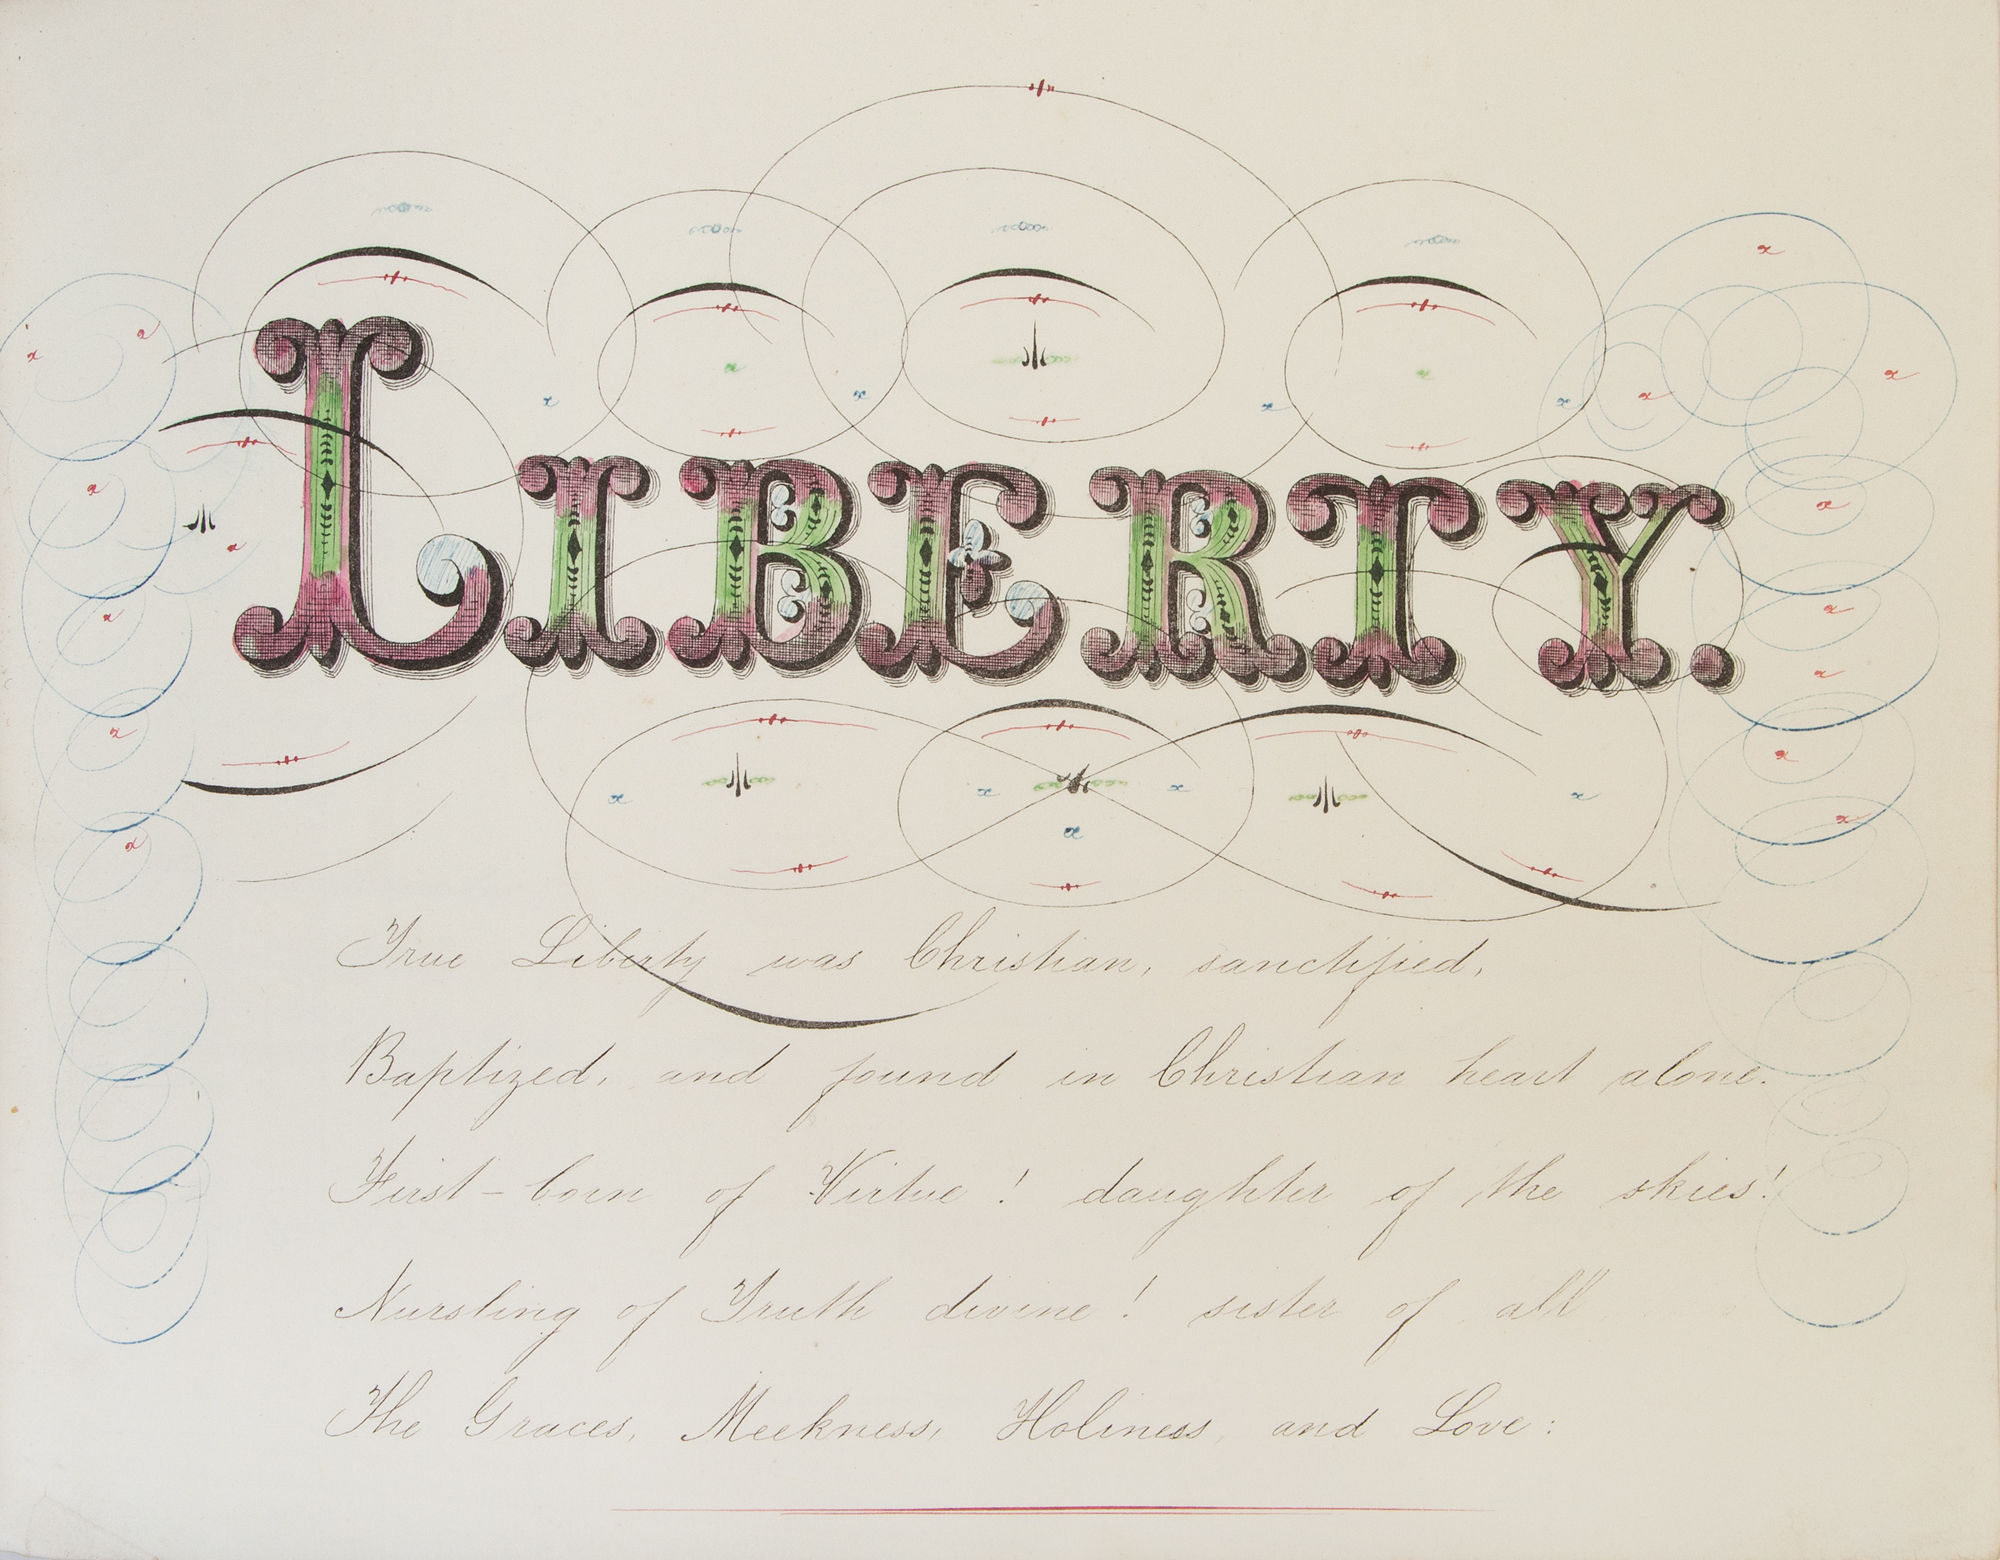 LIBERTY.
True Liberty was Christian, sanctified,
Baptized, and found in Christian heart alone.
First-born of Virtue! daughter of the skies!
Nursling of Truth divine! sister of all
The Graces, Meekness, Holiness, and Love: